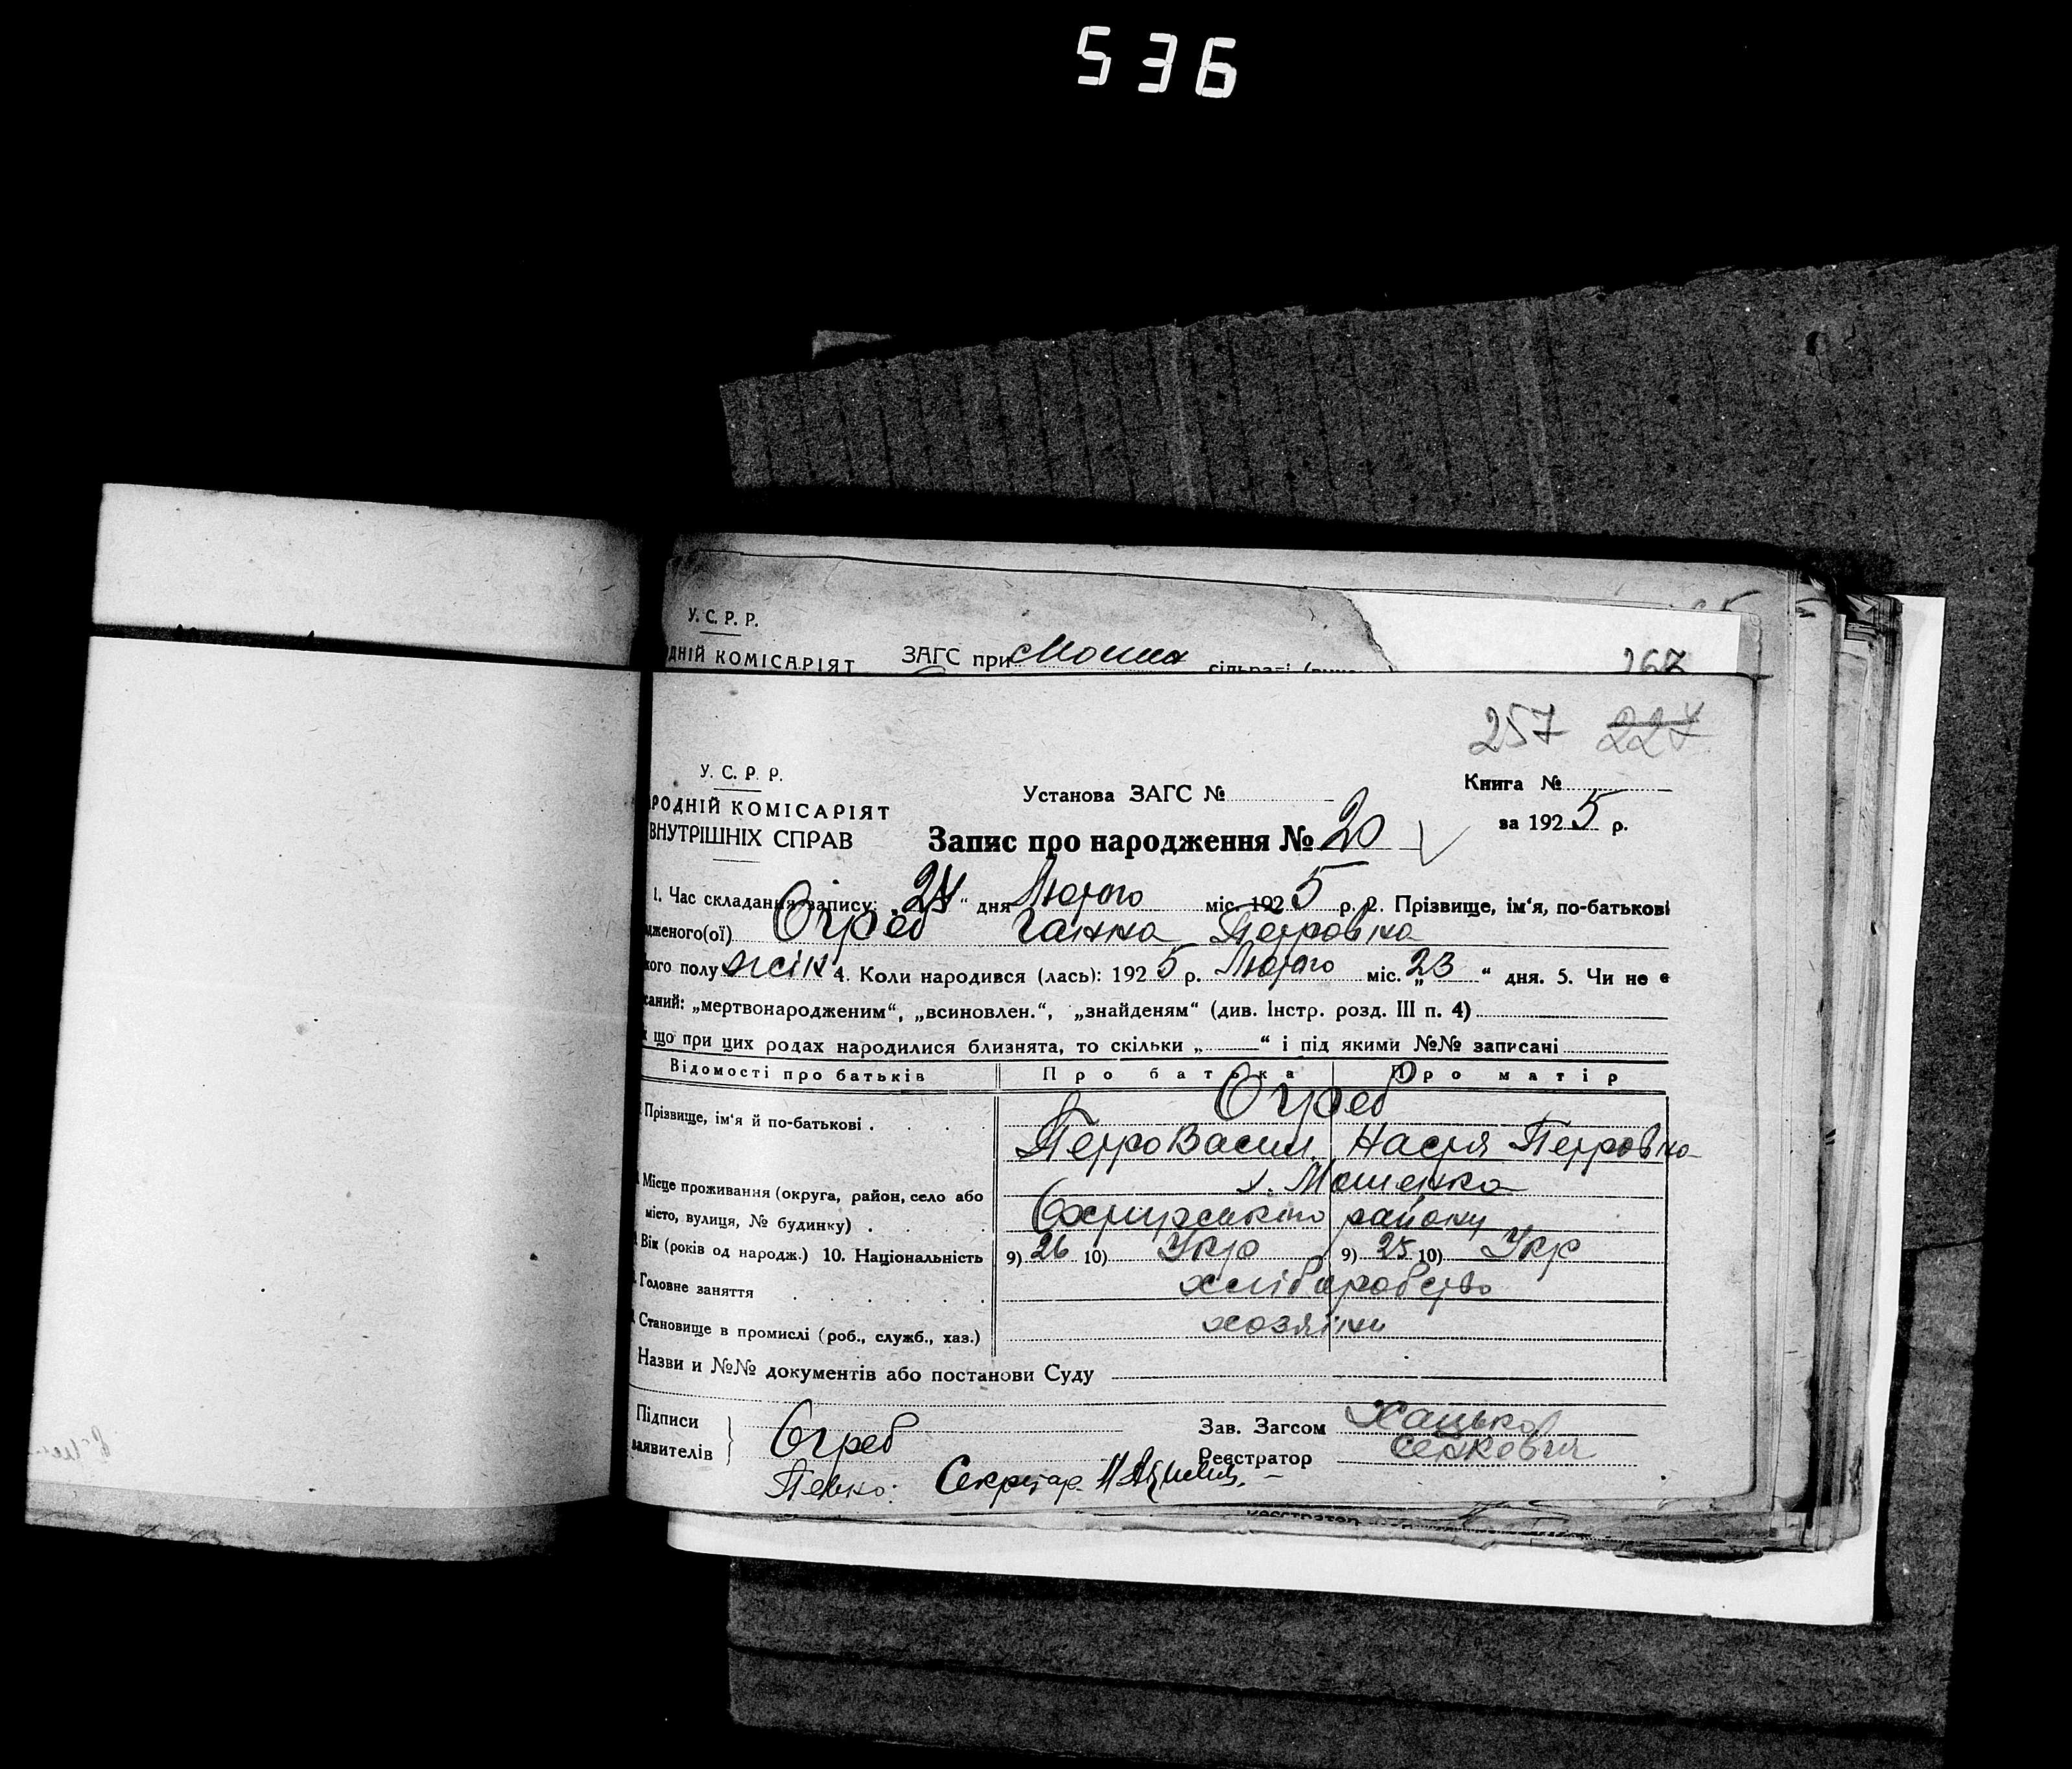 536
У. С. Р. Р.
ДНІЙ КОМІСАРІЯТ ЗАГС при
267
257 227
У. С. Р. Р.
РОДНІЙ КОМІСАРІЯТ
ВНУТРІШНІХ СПРАВ
Установа ЗАГС №
Книга №
за 1925 р.
Запис про народження № 20
1. Час складання запису: 24 “ дня Лютого міс. 1925 р. 2. Прізвище, ім‘я, по-батькові
дженого(ої) Огреб Ганна Петровна
кого полу жін 4. Коли народився (лась): 1925 р. Лютого міс. „23 “ дня. 5. Чи не є
саний: „мертвонародженим“, „всиновлен.“, „знайденям“ (див. Інстр. розд. III п. 4)
що при цих родах народилися близнята, то скільки „ “ і під якими №№ записані
Відомості про батьків Про батька Про матір
Прізвище, ім‘я й по-батькові . Огреб
Петро Васил. Настя Петровна
Місце проживання (округа, район, село або х. Мошенка
місто, вулиця, № будинку) . району
Вік (років од народж.) 10. Національність 9) 26 10) Укр 9) 25 10) Укр
Головне заняття хліборобство
Становище в промислі (роб., служб., хаз.) хозяіни
Назви и №№ документів або постанови Суду
Підписи
заявителів } Огреб
Зав. Загсом Хацько
Реєстратор
Секретар